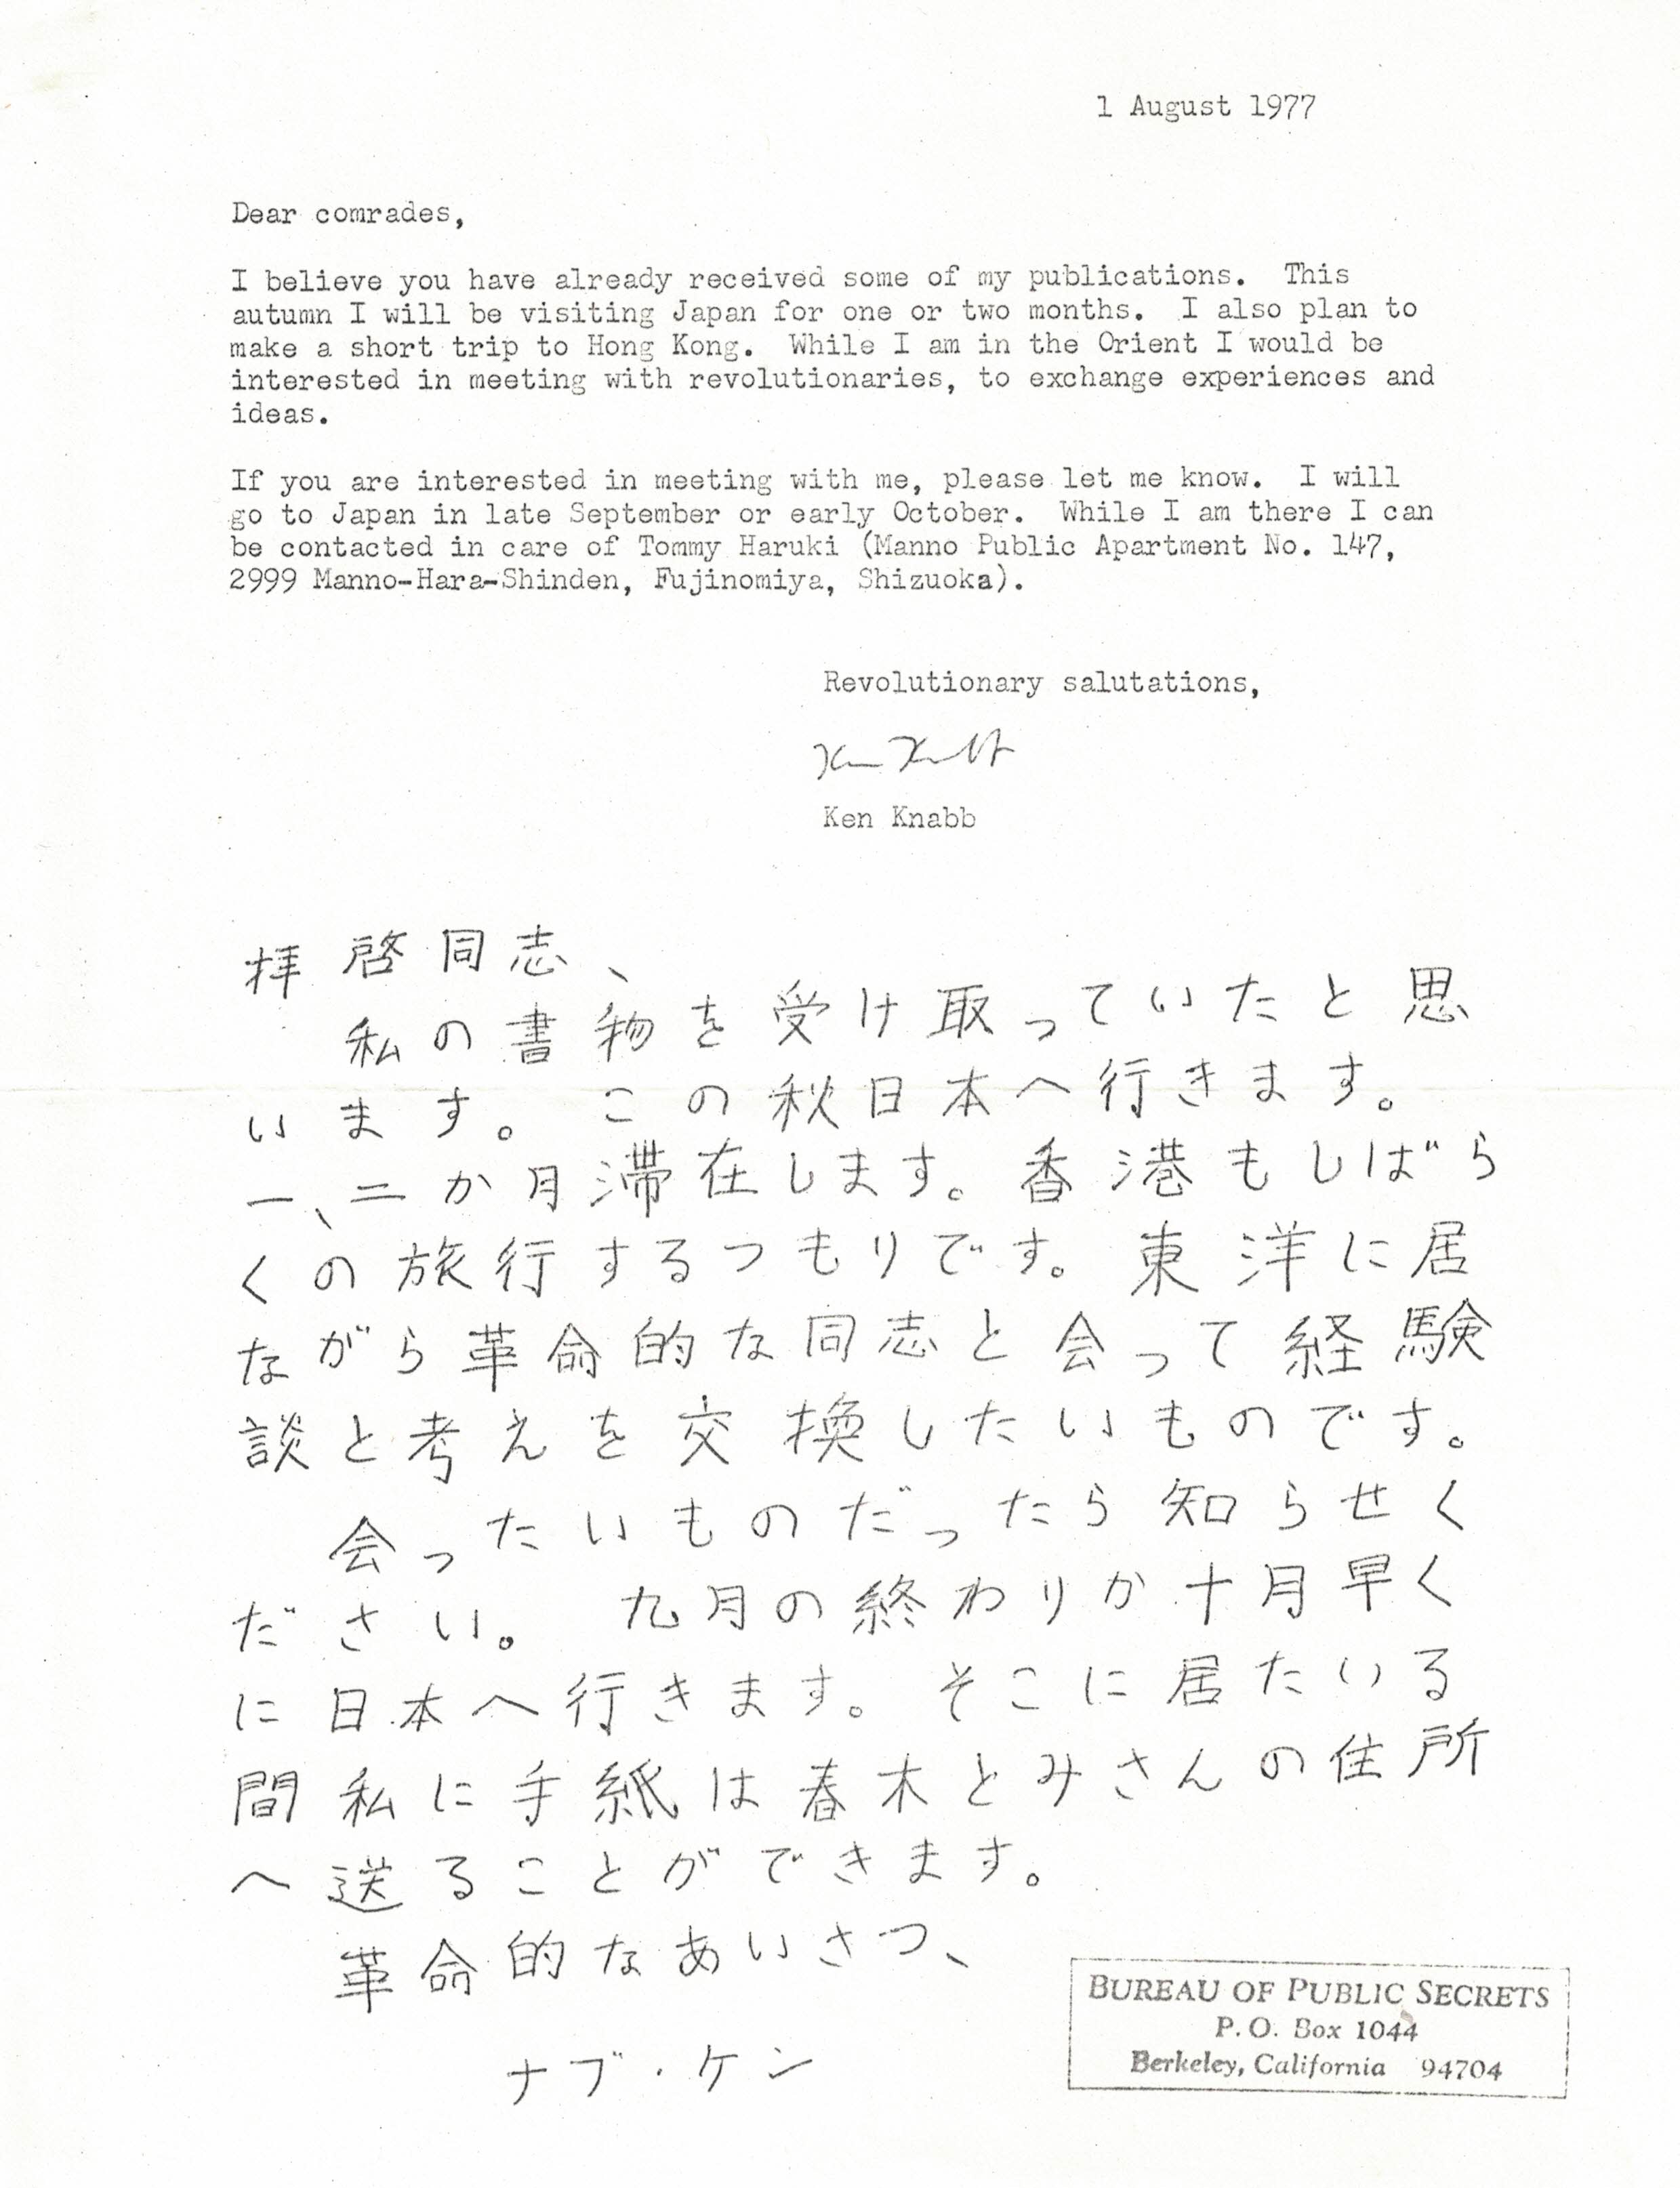 1 August 1977
Dear comrades,
I believe you have already received some of my publications.  This
autumn I will be visiting Japan for one or two months.  I also plan to
make a short trip to Hong Kong.  While I am in the Orient I would be
interested in meeting with revolutionaries, to exchange experiences and
ideas.
If you are interested in meeting with me, please let me know.  I will
go to Japan in late September or early October.  While I am there I can
be contacted in care of Tommy Haruki (Manno Public Apartment No. 147,
2999 Manno-Hara-Shinden, Fujinomiya, Shizuoka).
Revolutionary salutations,
Ken Knabb
Ken Knabb
拝啓同志、
私の書物を受け取っていたと思
います。この秋日本へ行きます。
一、二か月滞在します。香港もしばら
くの旅行するつもりです。東洋に居
ながら革命的な同志と会って経験
談と考えを交換したいものです。
会ったいものだったら知らせく
ださい。九月の終わりか十月早く
に日本へ行きます。そこに居たいる
間私に手紙は春木とみさんの住所
へ送ることができます。
革命的なあいさつ、
ナブ・ケン
BUREAU OF PUBLIC SECRETS
P.O. Box 1044
Berkeley, California 94704